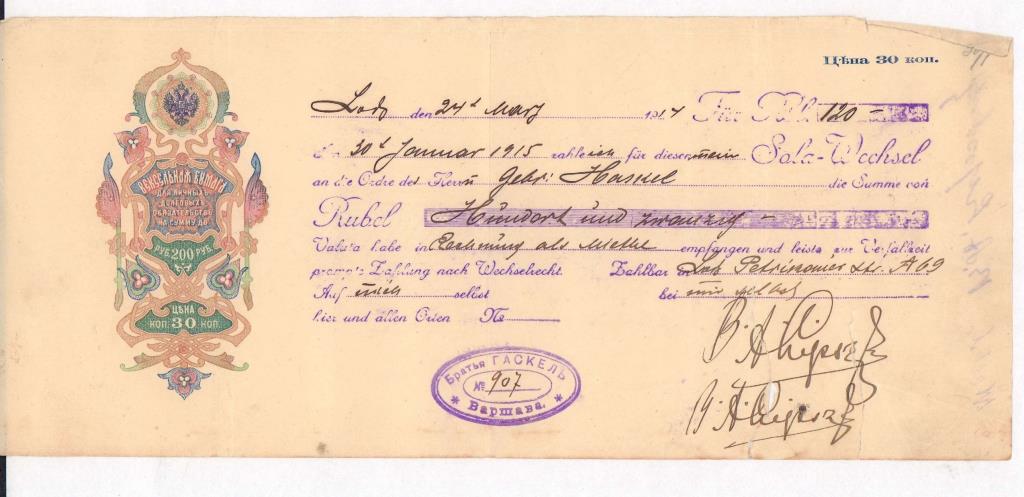 Цѣна 30 коп.
ВЕКСЕЛЬНАЯ БУМАГА
ДЛЯ ЛИЧНЫХЪ
ДОЛГОВЫХЪ
ОБЯЗАТЕЛЬСТВЪ
НА СУММУ ДО
РУБ 200 РУБ.
ЦѢНА
КОП. 30 КОП.
Lodz den 24t März 1914 Für Rbl. 120 =
30t Januar 1915 zahle ich für diesen mein Sola-Wechsel
an die Ordre des Herrn Gebr: Haskel die Summe von
Rubel Hundert und zwanzig =
Valuta habe in Rechnung als empfangen und leiste zur Verfallzeit
prompte Zahlung nach Wechselrecht. Zahlbar Str. 69
Auf mich selbst bei mir selbst
hier und allen Orten №
Братья ГАСКЕЛЬ
№ 907
* Варшава. *